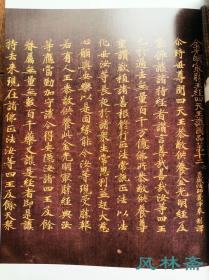 金光明最勝王經四天王護國品第十二 三藏法師義淨奉 制譯
尒時世尊聞四天王恭敬供養金光明經及
能擁護諸持經者讚言善哉善哉汝等四王
已於過去無量百千万億佛所恭敬供養尊
重讚歎植諸善根修行正法常說正法以法
化世汝等長夜於諸衆生常思利益起大慈
心願與安樂以是因緣能令汝等現受勝報
若有人王恭敬供養此金光明最勝經典汝
等應當勤加守護令得安隱汝諸四王及餘
眷屬無量無數百千藥叉護是經者即是護
持去來現在諸佛正法汝等四王及餘天衆
风林斋